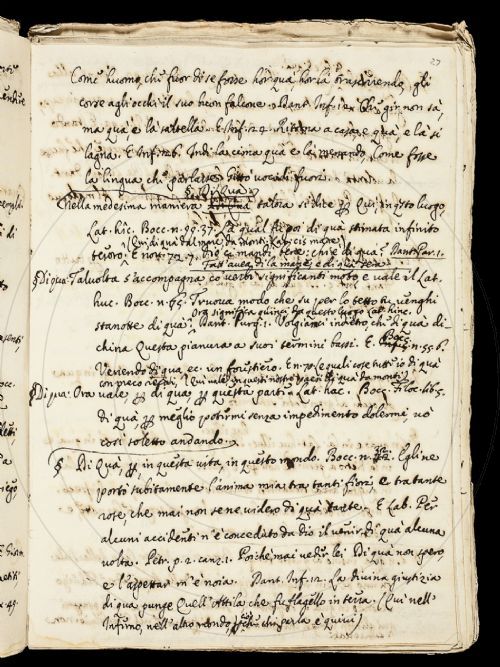 27
Com' huomo, ch'è fuor di se forse hor quà hor là trascorrendo, gli
corse agli occhi il suo buon falcone. Dant. Inf. 12. Chi gir non sa,
ma quà e là saltella. E Inf. 24. Ritorna a casa, e quà, e là si
lagna. E Inf. 26. Indi la cima quà e là menando, Come fosse
la lingua che parlasse, Gittò voce di fuori.
§ Di Quà
Nella medesima maniera talora si dice per Qui, in questo luogo,
Lat. hic. Bocc. n. 99. 37. La qual fu poi di quà stimata infinito
tesoro. E nov. 72. 7. 
(Qui di quà dal mare, da monti, Lat. cis mare)
Dant. Par. 1.
Fatto avea di là mane, e di quà sera
§ Di quà. Talvolta s'accompagna co' verbi significanti moto, e vale il Lat.
huc. Bocc. n. 65. Truova modo che su per lo tetto tu venghi
Ora significa quinci da questo luogo Lat. hinc
stanotte di quà. Dant. Purg. 1. Volgianci indietro chi di quà di-
china Questa pianura a' suoi termini bassi. E. Bocc. n. 55. 6.
Venendo di quà ec. un forestiero. E n. 70 le quali cose tutte io di quà
con preco recati, (Qui vale in questi nostri paesi di quà da monti)
§ Di quà: Ora vale per di quà, per questa parte. Lat. hac. Bocc. Filoc. lib. 5.
di quà, per meglio potermi senza impedimento dolerme, vo
così soletto andando.
§ Di Quà, per in questa vita, in questo mondo. Bocc. n. Egli ne
portò subitamente l'anima mia tra tanti fiori, e tra tante
rose, che mai non se ne videro di quà tante. E Lab. Per
alcuni accidenti n'è conceduto da dio il venir di quà alcuna
volta. Petr. p. 2. canz. 1. Poichè mai veder lei Di quà non spero,
e l'aspettar m'è noia. Dant. Inf. 12. La divina giustizia
di quà punge Quell' Attila che fu flagello in terra. (Qui nell'
Inferno, nell' altro mondo, chi parla è quivi)